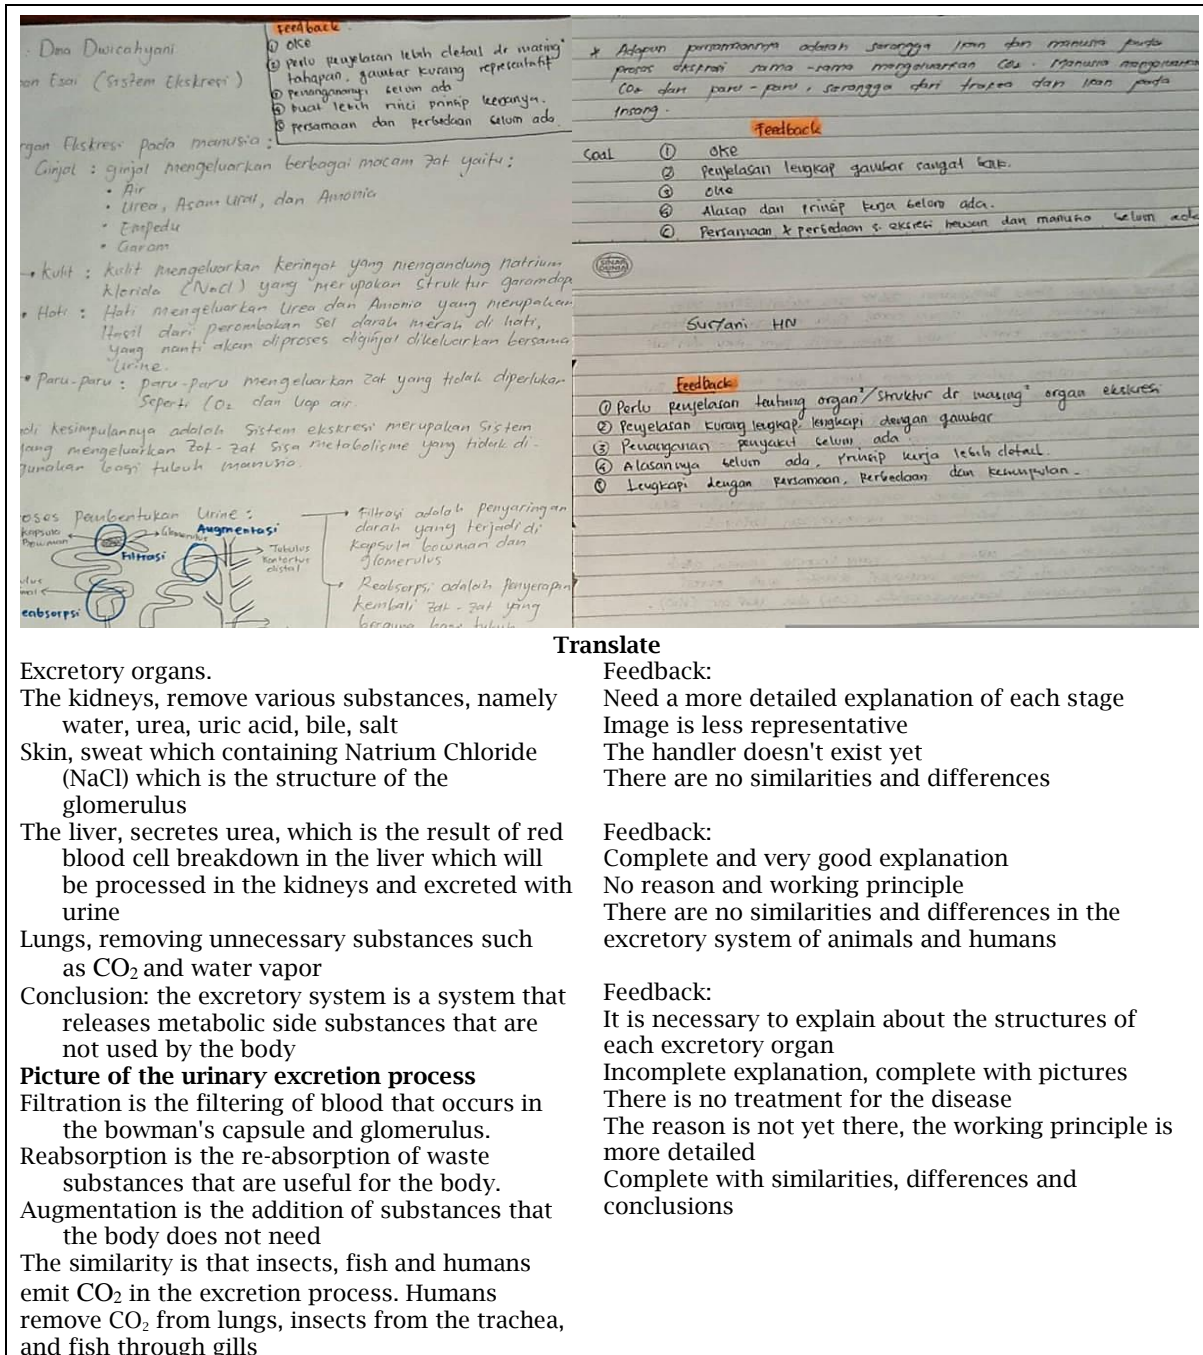 Dina Dwicahyani
Esai (Sistem Ekskresi)
Feedback
① oke
② perlu penjelasan lebih detail dr masing"
tahapan, gambar kurang representatif
③ penanganannya belum ada
④ buat lebih rinci prinsip kerjanya.
⑤ persamaan dan perbedaan belum ada
Ekskresi pada manusia :
Ginjal : ginjal mengeluarkan berbagai macam zat yaitu :
• Air
• Urea, Asam Urat, dan Amonia
• Empedu
• Garam
→ Kulit : kulit mengeluarkan keringat yang mengandung Natrium
klorida (NaCl) yang merupakan struktur
• Hati : Hati mengeluarkan Urea dan Amonia yang merupakan
Hasil dari perombakan sel darah merah di hati,
yang nanti akan diproses diginjal dikeluarkan bersama
Urine.
• Paru-paru : paru-paru mengeluarkan zat yang tidak diperlukan
Seperti CO2 dan Uap air.
kesimpulannya adalah Sistem ekskresi merupakan Sistem
yang mengeluarkan Zat-zat Sisa metabolisme yang tidak di-
gunakan bagi tubuh manusia.
Pembentukan Urine :
Kapsula
Bowman
Glomerulus
Augmentasi
Filtrasi
Tubulus
Kontortus
distal
→ Filtrasi adalah penyaringan
darah yang terjadi di
Kapsula bowman dan
glomerulus
→ Reabsorpsi adalah penyerapan
kembali zat-zat yang
* Adapun persamaannya adalah serangga ikan dan manusia pada
proses ekspresi sama-sama mengeluarkan CO2. Manusia mengeluarkan
CO2 dari paru-paru, serangga dari trakea dan ikan pada
Insang.
Feedback
Soal ① oke
② Penjelasan lengkap gambar sangat baik.
③ oke
④ Alasan dan prinsip kerja belom ada.
⑤ Persamaan & perbedaan s. ekskresi hewan dan manusia belum ada
Suryani HN
Feedback
① Perlu penjelasan tentang organ"/struktur dr masing" organ ekskresi
② Penjelasan kurang lengkap, lengkapi dengan gambar
③ Penanganan penyakit belum ada.
④ Alasannya belum ada, Prinsip kerja lebih detail.
⑤ Lengkapi dengan persamaan, perbedaan dan kesimpulan.
Translate
Excretory organs.
The kidneys, remove various substances, namely
water, urea, uric acid, bile, salt
Skin, sweat which containing Natrium Chloride
(NaCl) which is the structure of the
glomerulus
The liver, secretes urea, which is the result of red
blood cell breakdown in the liver which will
be processed in the kidneys and excreted with
urine
Lungs, removing unnecessary substances such
as CO2 and water vapor
Conclusion: the excretory system is a system that
releases metabolic side substances that are
not used by the body
Picture of the urinary excretion process
Filtration is the filtering of blood that occurs in
the bowman's capsule and glomerulus.
Reabsorption is the re-absorption of waste
substances that are useful for the body.
Augmentation is the addition of substances that
the body does not need
The similarity is that insects, fish and humans
emit CO2 in the excretion process. Humans
remove CO2 from lungs, insects from the trachea,
and fish through gills
Feedback:
Need a more detailed explanation of each stage
Image is less representative
The handler doesn't exist yet
There are no similarities and differences
Feedback:
Complete and very good explanation
No reason and working principle
There are no similarities and differences in the
excretory system of animals and humans
Feedback:
It is necessary to explain about the structures of
each excretory organ
Incomplete explanation, complete with pictures
There is no treatment for the disease
The reason is not yet there, the working principle is
more detailed
Complete with similarities, differences and
conclusions